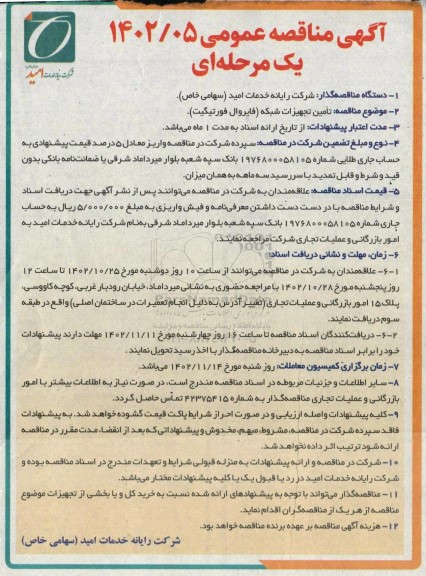 آگهی مناقصه عمومی ۱۴۰۲/۰۵
یک مرحله‌ای
شرکت رایانه خدمات امید
۱- دستگاه مناقصه‌گذار: شرکت رایانه خدمات امید (سهامی خاص).
۲- موضوع مناقصه: تأمین تجهیزات شبکه (فایروال فورتیگیت).
۳- مدت اعتبار پیشنهادات: از تاریخ ارائه اسناد به مدت ۱ ماه می‌باشد.
۴- نوع و مبلغ تضمین شرکت در مناقصه: سپرده شرکت در مناقصه واریز معادل ۵ درصد قیمت پیشنهادی به
حساب جاری طلایی شماره ۱۹۷۶۸۰۰۰۵۸۱۰۵ بانک سپه شعبه بلوار میرداماد شرقی یا ضمانت‌نامه بانکی بدون
قید و شرط و قابل تمدید با سررسید سه ماهه به همان میزان.
۵- قیمت اسناد مناقصه: علاقه‌مندان به شرکت در مناقصه می‌توانند پس از نشر آگهی جهت دریافت اسناد
و شرایط مناقصه با در دست داشتن معرفی‌نامه و فیش واریزی به مبلغ ۵/۰۰۰/۰۰۰ ریال به حساب
جاری شماره ۱۹۷۶۸۰۰۰۵۸۱۰۵ بانک سپه شعبه بلوار میرداماد شرقی به‌نام شرکت رایانه خدمات امید به
امور بازرگانی و عملیات تجاری شرکت مراجعه نمایند.
۶- زمان، مهلت و نشانی دریافت اسناد:
۶-۱- علاقه‌مندان به شرکت در مناقصه می‌توانند از ساعت ۱۰ روز دوشنبه مورخ ۱۴۰۲/۱۰/۲۵ تا ساعت ۱۲
روز پنجشنبه مورخ ۱۴۰۲/۱۰/۲۸ با مراجعه حضوری به نشانی میرداماد، خیابان رودبار غربی، کوچه کاووسی،
پلاک ۱۵ امور بازرگانی و عملیات تجاری (تغییر آدرس به دلیل انجام تعمیرات در ساختمان اصلی) واقع در طبقه
سوم دریافت نمایند.
۶-۲- دریافت‌کنندگان اسناد مناقصه تا ساعت ۱۶ روز چهارشنبه مورخ ۱۴۰۲/۱۱/۱۱ مهلت دارند پیشنهادات
خود را برابر اسناد مناقصه به دبیرخانه مناقصه‌گذار با اخذ رسید تحویل نمایند.
۷- زمان برگزاری کمیسیون معاملات: روز شنبه مورخ ۱۴۰۲/۱۱/۱۴ می‌باشد.
۸- سایر اطلاعات و جزئیات مربوطه در اسناد مناقصه مندرج است، در صورت نیاز به اطلاعات بیشتر با امور
بازرگانی و عملیات تجاری مناقصه‌گذار به شماره ۴۲۳۷۵۴۱۵ تماس حاصل گردد.
۹- کلیه پیشنهادات واصله ارزیابی و در صورت احراز شرایط پاکت قیمت گشوده خواهد شد. به پیشنهادات
فاقد سپرده شرکت در مناقصه، مشروط، مبهم، مخدوش و پیشنهاداتی که بعد از انقضا، مدت مقرر در مناقصه
ارائه شود ترتیب اثر داده نخواهد شد.
۱۰- شرکت در مناقصه و ارائه پیشنهادات به منزله قبولی شرایط و تعهدات مندرج در اسناد مناقصه بوده و
شرکت رایانه خدمات امید در رد یا قبول یک یا کلیه پیشنهادات مختار می‌باشد.
۱۱- مناقصه‌گذار می‌تواند با توجه به پیشنهادهای ارائه شده نسبت به خرید کل و یا بخشی از تجهیزات موضوع
مناقصه از هر یک از مناقصه‌گران اقدام نماید.
۱۲- هزینه آگهی مناقصه بر عهده برنده مناقصه خواهد بود.
شرکت رایانه خدمات امید (سهامی خاص)